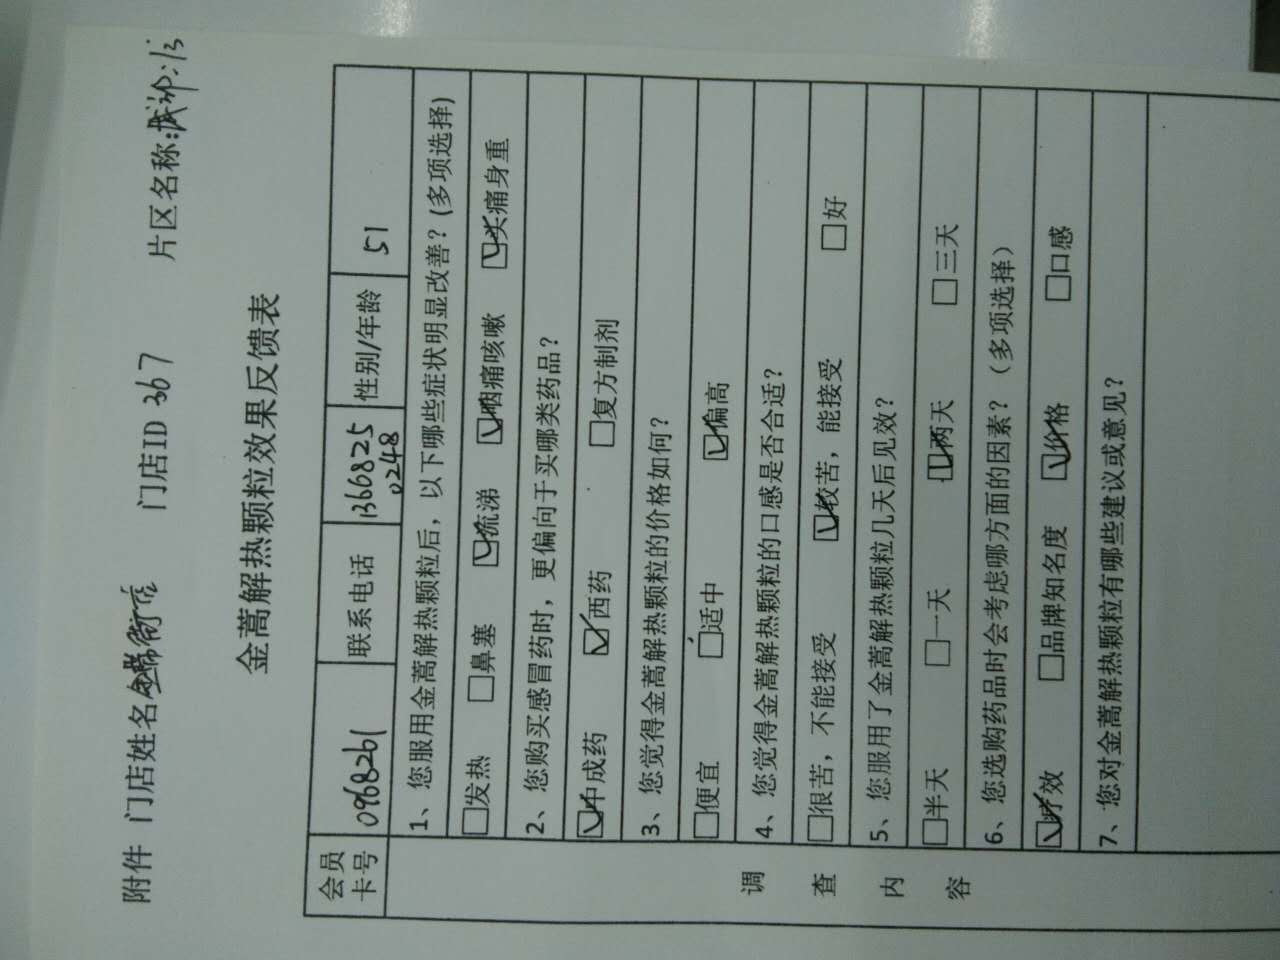 附件 门店姓名 门店ID 367 片区名称:
金蒿解热颗粒效果反馈表
会员卡号 0968261 联系电话 13668250248 性别/年龄 51
1、您服用金蒿解热颗粒后，以下哪些症状明显改善？(多项选择)
□发热 □鼻塞 ☑流涕 ☑咽痛咳嗽 ☑头痛身重
2、您购买感冒药时，更偏向于买哪类药品？
☑中成药 ☑西药 □复方制剂
3、您觉得金蒿解热颗粒的价格如何？
□便宜 □适中 ☑偏高
4、您觉得金蒿解热颗粒的口感是否合适？
□很苦，不能接受 ☑较苦，能接受 □好
5、您服用了金蒿解热颗粒几天后见效？
□半天 □一天 ☑两天 □三天
6、您选购药品时会考虑哪方面的因素？（多项选择）
☑疗效 □品牌知名度 ☑价格 □口感
7、您对金蒿解热颗粒有哪些建议或意见？
调查内容